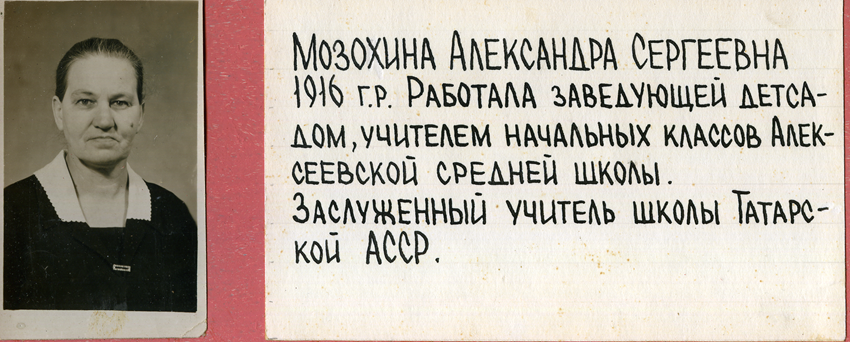 Мозохина Александра Сергеевна
1916 г.р. Работала заведующей детса-
дом, учителем начальных классов Алек-
сеевской средней школы.
Заслуженный учитель школы Татарс-
кой АССР.